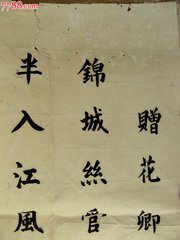 7788.com
贈花卿
錦城絲管
半入江風